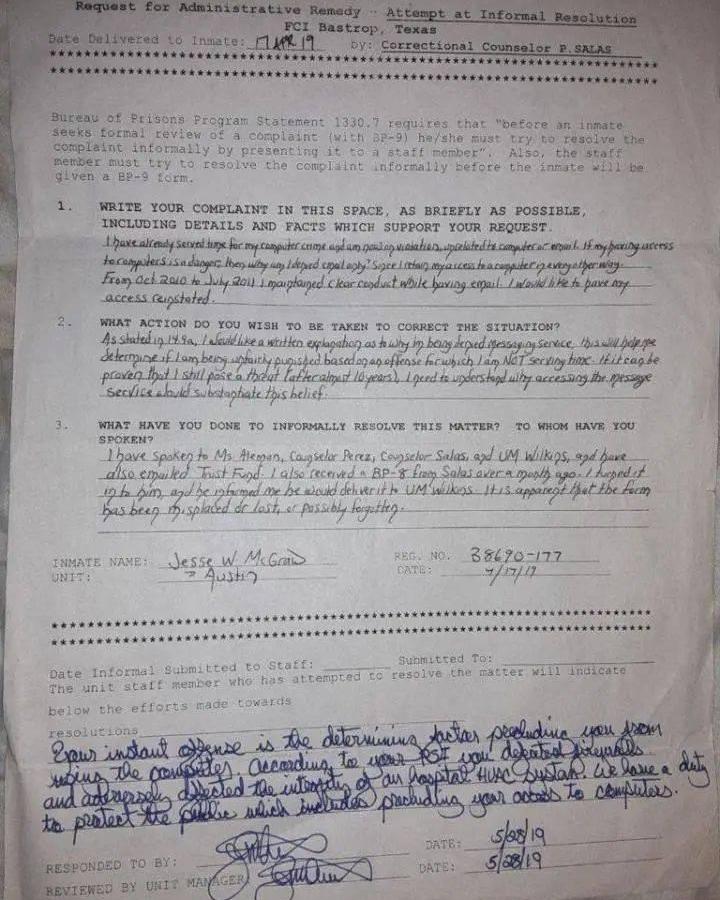 Request for Administrative Remedy - Attempt at Informal Resolution
FCI Bastrop, Texas
Date Delivered to Inmate: 17 APR 19 by: Correctional Counselor P. SALAS
****************************************************************
****************************************************************
Bureau of Prisons Program Statement 1330.7 requires that "before an inmate
seeks formal review of a complaint (with BP-9) he/she must try to resolve the
complaint informally by presenting it to a staff member". Also, the staff
member must try to resolve the complaint informally before the inmate will be
given a BP-9 form.
1. WRITE YOUR COMPLAINT IN THIS SPACE, AS BRIEFLY AS POSSIBLE,
INCLUDING DETAILS AND FACTS WHICH SUPPORT YOUR REQUEST.
I have already served time for my computer crime and am now on violation, unrelated to computer or email. If my having access
to computers is a danger, then why am I denied email only? Since I retain my access to a computer in every other way.
From Oct 2010 to July 2011 I maintained clear conduct while having email. I would like to have my
access reinstated.
2. WHAT ACTION DO YOU WISH TO BE TAKEN TO CORRECT THE SITUATION?
As stated in 14.9a, I would like a written explanation as to why I'm being denied messaging service, this will help me
determine if I am being unfairly punished based on an offense for which I am NOT serving time. If it can be
proven that I still pose a threat (after almost 10 years), I need to understand why accessing the message
service would substantiate this belief.
3. WHAT HAVE YOU DONE TO INFORMALLY RESOLVE THIS MATTER? TO WHOM HAVE YOU
SPOKEN?
I have spoken to Ms. Aleman, Counselor Perez, Counselor Salas, and UM Wilkins, and have
also emailed Trust Fund. I also received a BP-8 from Salas over a month ago. I turned it
in to him, and he informed me he would deliver it to UM Wilkins. It is apparent that the form
has been misplaced or lost, or possibly forgotten.
INMATE NAME: Jesse W McGraw REG. NO. 38690-177
UNIT: Austin DATE: 4/17/19
****************************************************************
****************************************************************
Date Informal Submitted to Staff: Submitted To:
The unit staff member who has attempted to resolve the matter will indicate
below the efforts made towards
resolutions
Your instant offense is the determining factor precluding you from
using the computer. According to your PSI you defeated firewalls
and adversely affected the integrity of an hospital HVAC system. We have a duty
to protect the public which includes precluding your access to computers.
RESPONDED TO BY: DATE: 5/28/19
REVIEWED BY UNIT MANAGER: DATE: 5/28/19